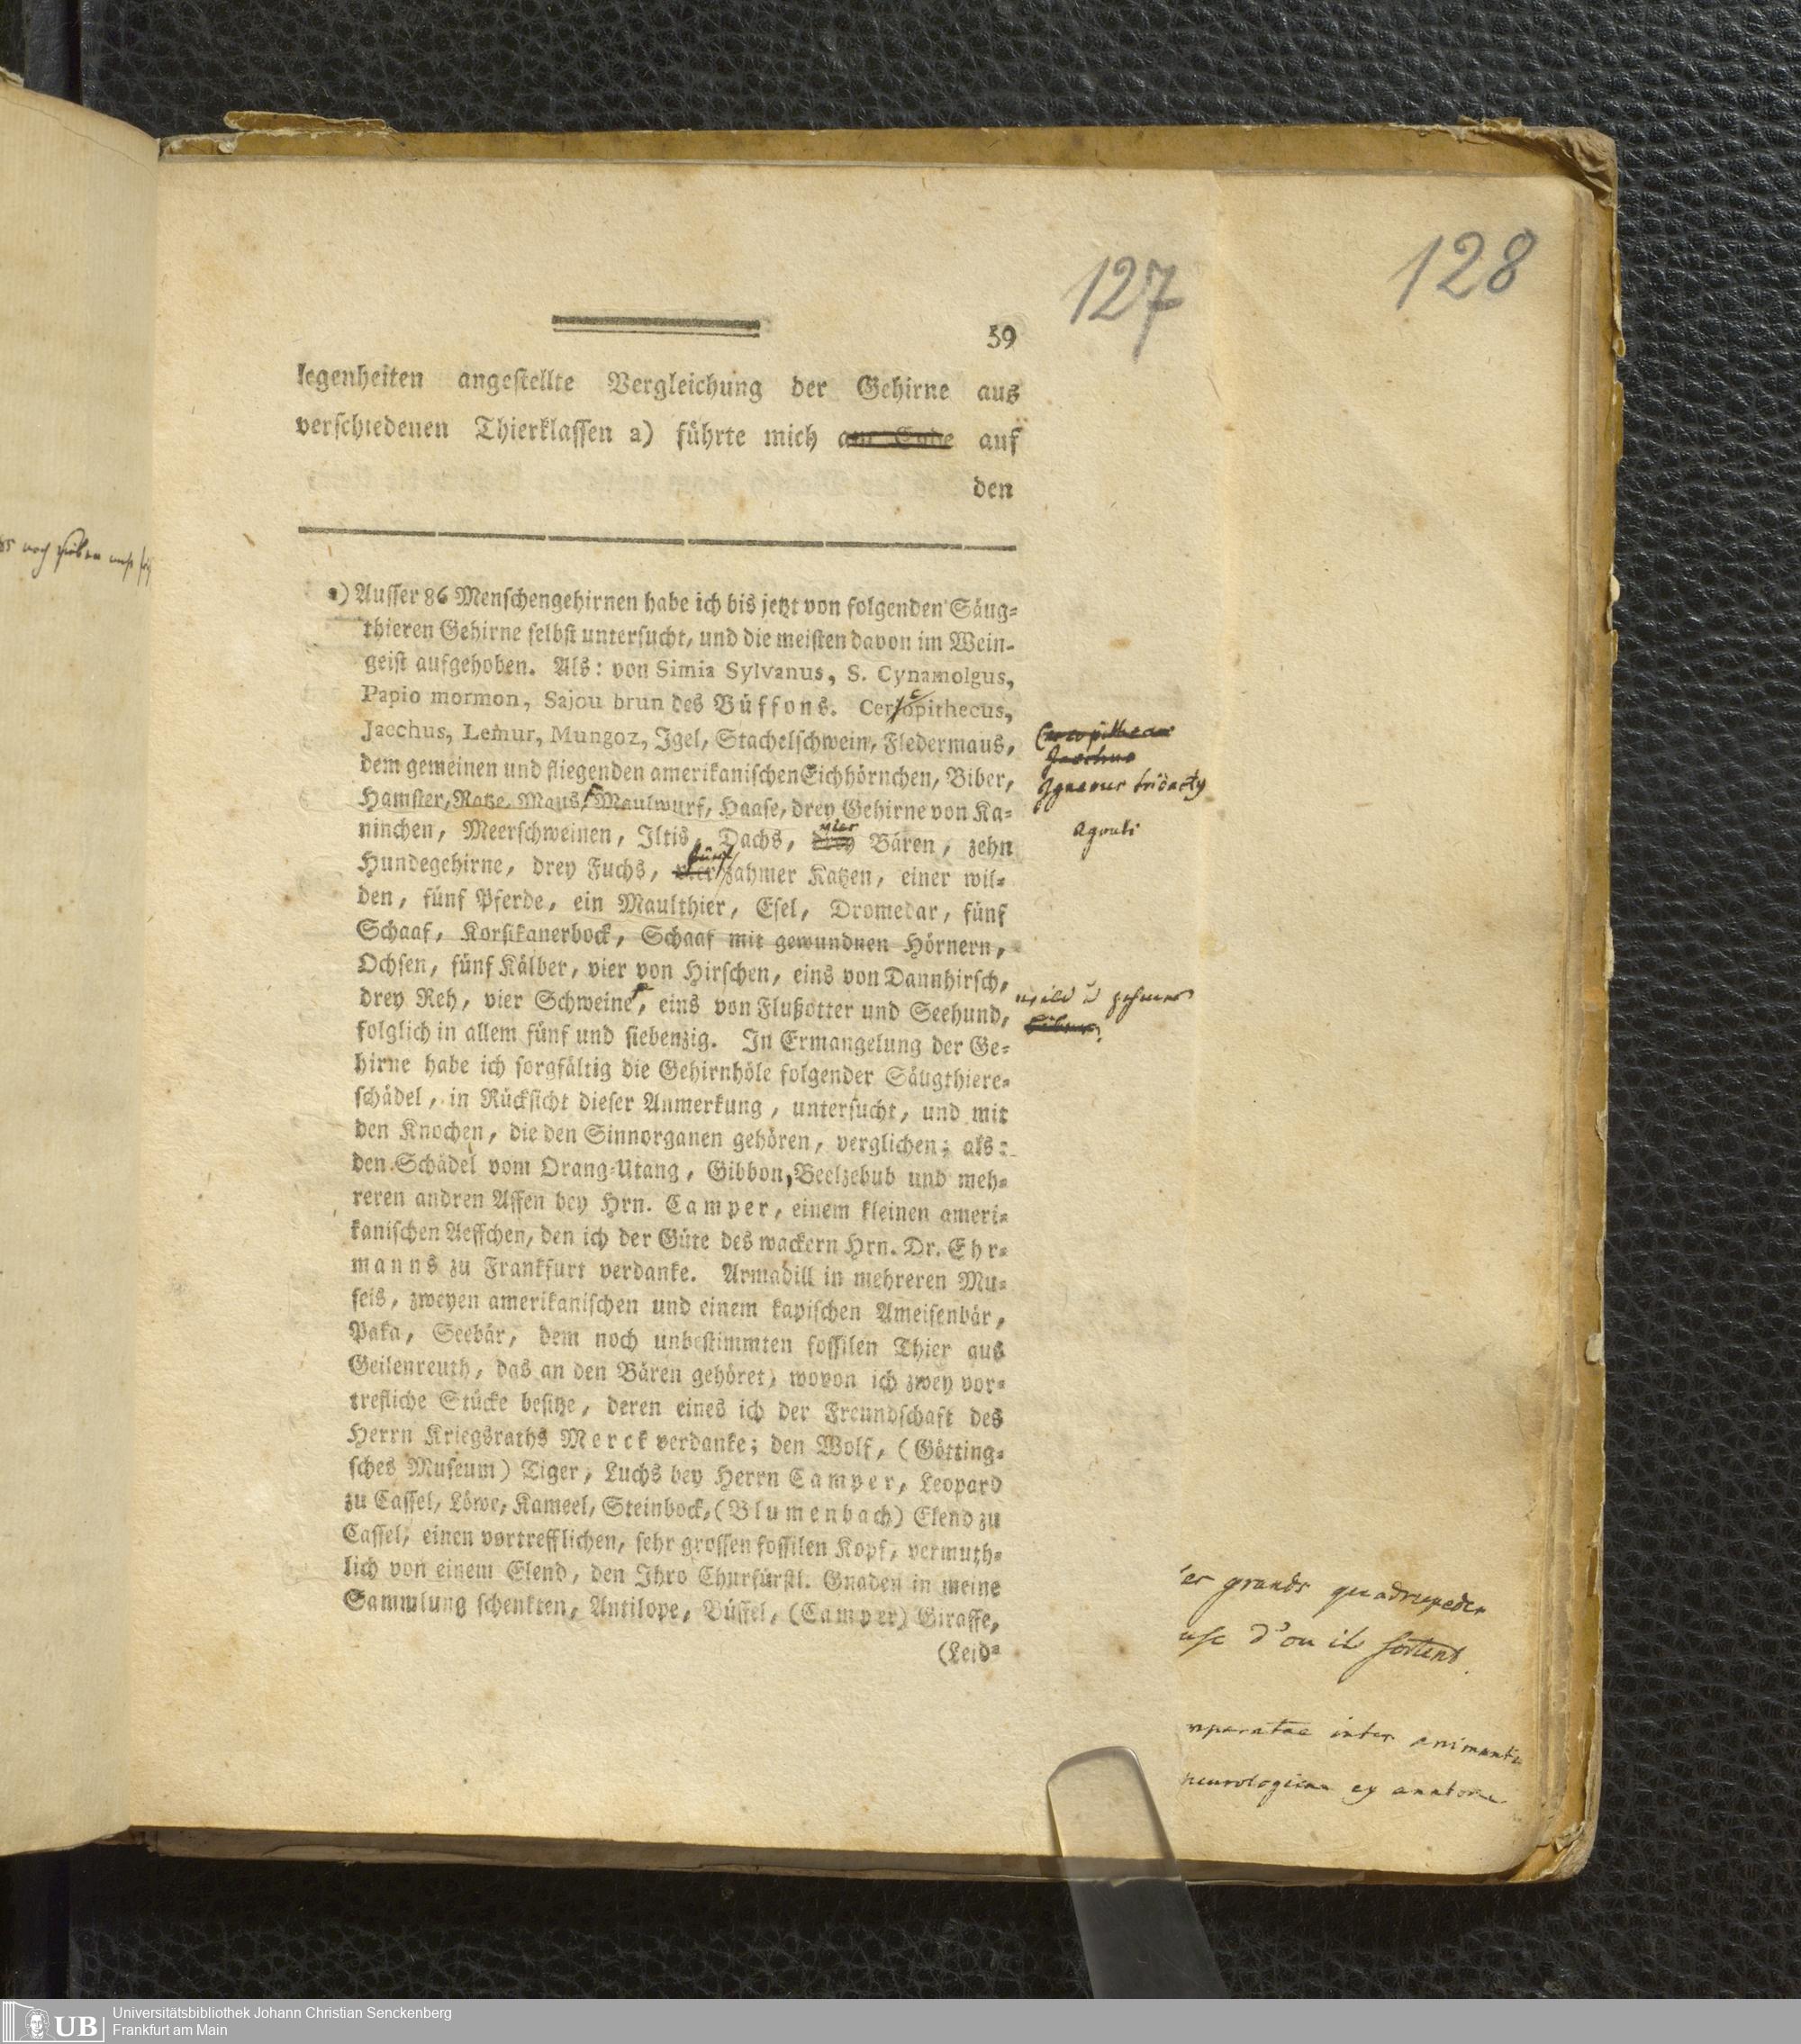 127
128
59
legenheiten angeſtellte Vergleichung der Gehirne aus
verſchiedenen Thierklaſſen a) führte mich am Ende auf
den
a) Auſſer 86 Menſchengehirnen habe ich bis jetzt von folgenden Säug⸗
thieren Gehirne ſelbſt unterſucht, und die meiſten davon im Wein⸗
geiſt aufgehoben. Als: von Simia Sylvanus, S. Cynamolgus,
Papio mormon, Sajou brun des Büffons. Cercopithecus,
Jacchus, Lemur, Mungoz, Igel, Stachelſchwein, Fledermaus,
Cercopithecus
Jacchus
dem gemeinen und fliegenden amerikaniſchen Eichhörnchen, Biber,
Ignavus tridacty
Hamſter, Ratze, Maus, Maulwurf, Haaſe, drey Gehirne von Ka⸗
Agouti
vier
ninchen, Meerſchweinen, Iltis, Dachs, drey Bären, zehn
fünf
Hundegehirne, drey Fuchs, vier zahmer Katzen, einer wil⸗
den, fünf Pferde, ein Maulthier, Eſel, Dromedar, fünf
Schaaf, Korſikanerbock, Schaaf mit gewundnen Hörnern,
Ochſen, fünf Kälber, vier von Hirſchen, eins von Dannhirſch,
drey Reh, vier Schweine, eins von Flußotter und Seehund,
folglich in allem fünf und ſiebenzig. In Ermangelung der Ge⸗
hirne habe ich ſorgfältig die Gehirnhöle folgender Säugthiere⸗
ſchädel, in Rückſicht dieſer Anmerkung, unterſucht, und mit
den Knochen, die den Sinnorganen gehören, verglichen; als:
den Schädel vom Orang⸗Utang, Gibbon, Beelzebub und meh⸗
reren andren Affen bey Hrn. Camper, einem kleinen ameri⸗
kaniſchen Aeffchen, den ich der Güte des wackern Hrn. Dr. Ehr⸗
manns zu Frankfurt verdanke. Armadill in mehreren Mu⸗
ſeis, zweyen amerikaniſchen und einem kapiſchen Ameiſenbär,
Paka, Seebär, dem noch unbeſtimmten foſſilen Thier aus
Geilenreuth, das an den Bären gehöret) wovon ich zwey vor⸗
trefliche Stücke beſitze, deren eines ich der Freundſchaft des
Herrn Kriegsraths Merck verdanke; den Wolf, (Götting⸗
ſches Muſeum) Tiger, Luchs bey Herrn Camper, Leopard
zu Caſſel, Löwe, Kameel, Steinbock, (Blumenbach) Elend zu
Caſſel, einen vortrefflichen, ſehr groſſen foſſilen Kopf, vermuth⸗
lich von einem Elend, den Ihro Churfürſtl. Gnaden in meine
Sammlung ſchenkten, Antilope, Büffel, (Camper) Giraffe,
(Leid⸗
es grands quadrupedes
d'ou ils sortent.
mparatae inter animantia
neurologiam ex anatom
UB
Universitätsbibliothek Johann Christian Senckenberg
Frankfurt am Main